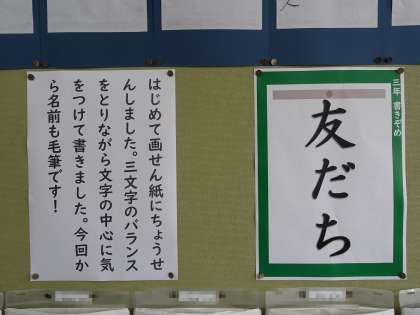 三年 書きぞめ
友だち
はじめて画せん紙にちょうせ
んしました。三文字のバランス
をとりながら文字の中心に気
をつけて書きました。今回か
ら名前も毛筆です!